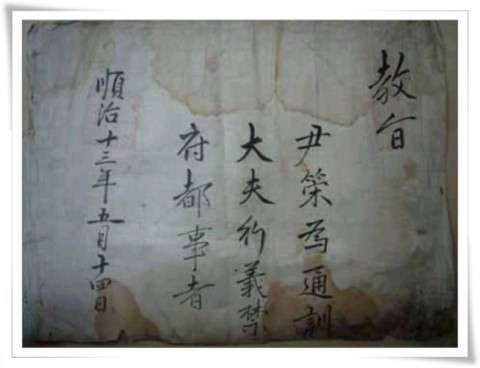 教旨
尹策為通訓
大夫行義禁
府都事者
順治十三年五月十四日